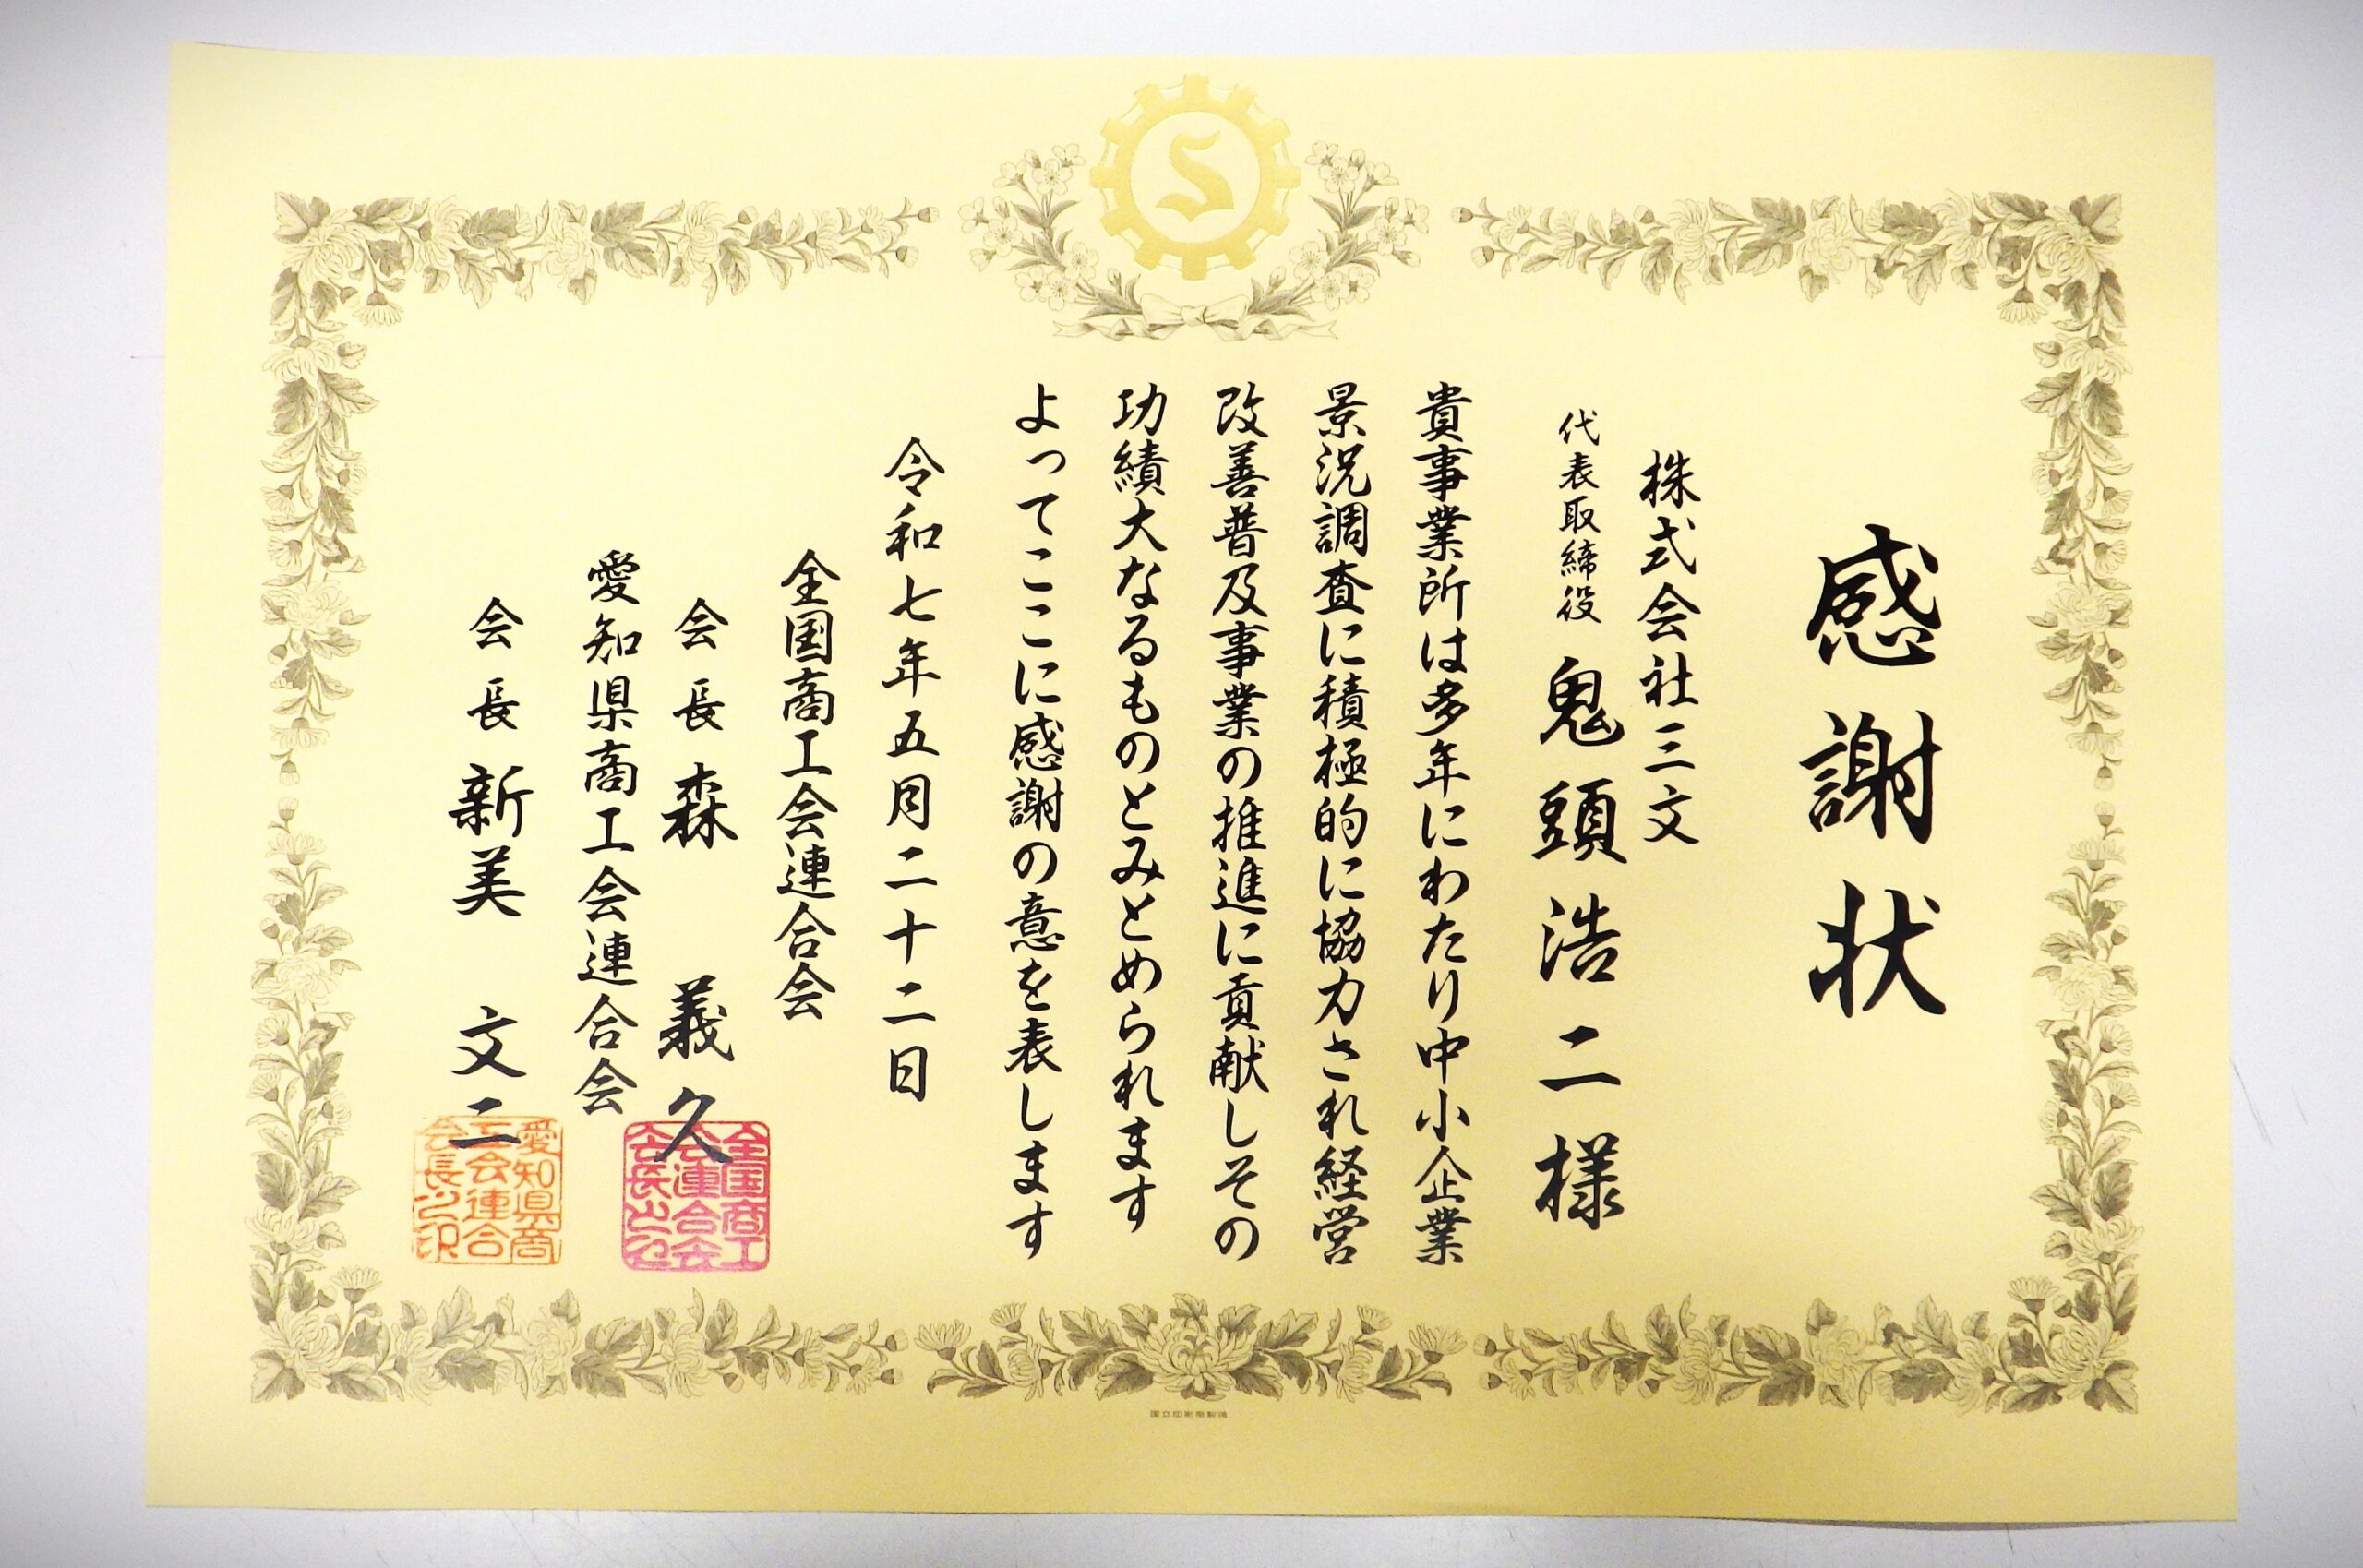 感謝状
株式会社三文
代表取締役 鬼頭浩二様
貴事業所は多年にわたり中小企業
景況調査に積極的に協力され経営
改善普及事業の推進に貢献しその
功績大なるものとみとめられます
よってここに感謝の意を表します
令和七年五月二十二日
全国商工会連合会
会長 森 義久
愛知県商工会連合会
会長 新美 文二
全国商工
会連合会
会長之印
愛知県商
工会連合
会長之印
S
国立印刷局製造